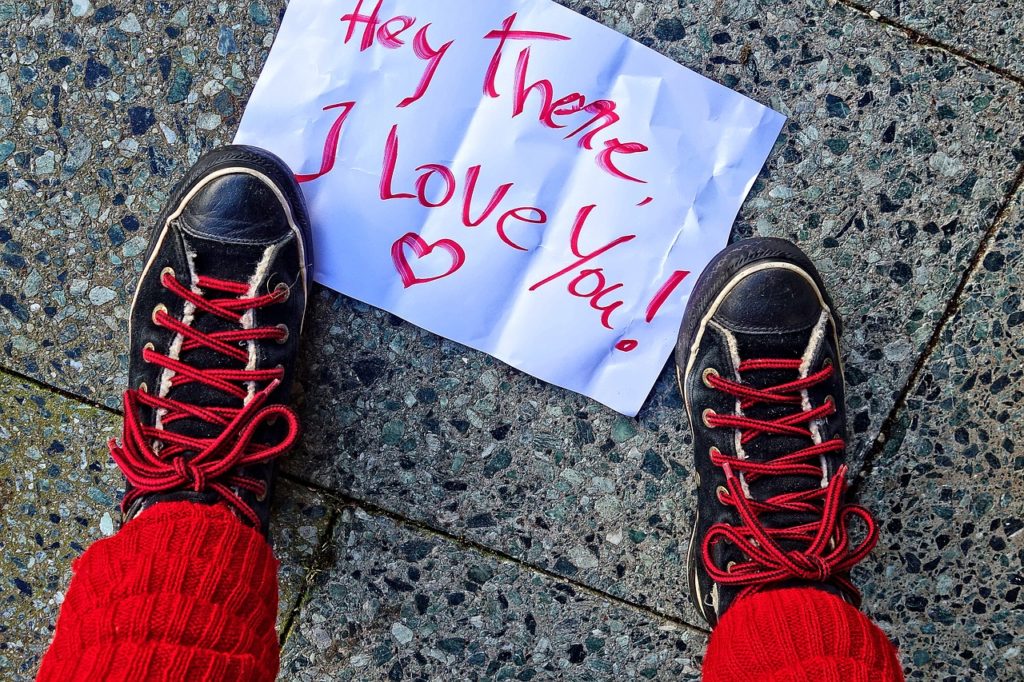 Hey There,
I Love You!